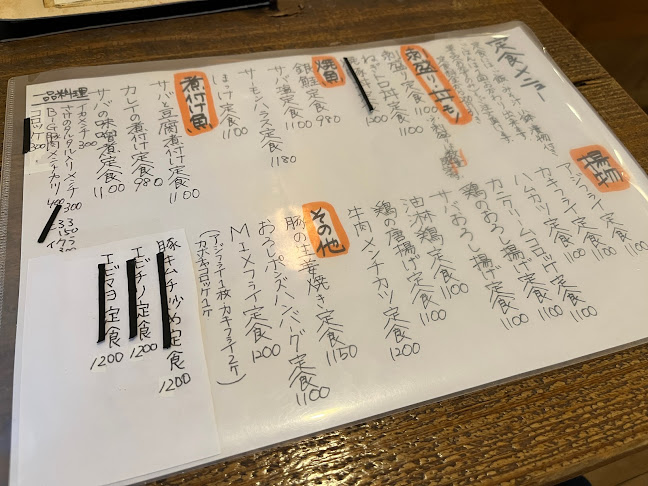 定食メニュー
刺盛り 丼モノ
刺盛り定食 1100
ねぎトロ丼定食 1100
焼魚
銀鮭定食 980
サバ塩定食 1100
サーモンハラス定食 1180
ほっけ定食 1100
煮付け魚
サバと豆腐煮付け定食 1100
カレイの煮付け定食 980
サバの味噌煮定食 1100
一品料理
イカメンチ 300
さけのタルタル入りメンチ 300
BIG豚肉メンチカツ 400
コロッケ 300
揚物
アジフライ定食 1100
カキフライ定食 1100
ハムカツ定食 1100
カニクリームコロッケ定食 1100
鶏のおろし揚げ定食 1100
サバおろし揚げ定食 1100
油林鶏定食 1100
鶏の唐揚げ定食 1100
牛肉メンチカツ定食 1200
その他
豚の生姜焼き定食 1150
おろしポンズハンバーグ定食 1100
MIXフライ定食 1200
(アジフライ1枚 カキフライ2ケ
カニコロッケ1ケ)
豚キムチ炒め定食 1200
エビチリ定食 1200
エビマヨ定食 1200